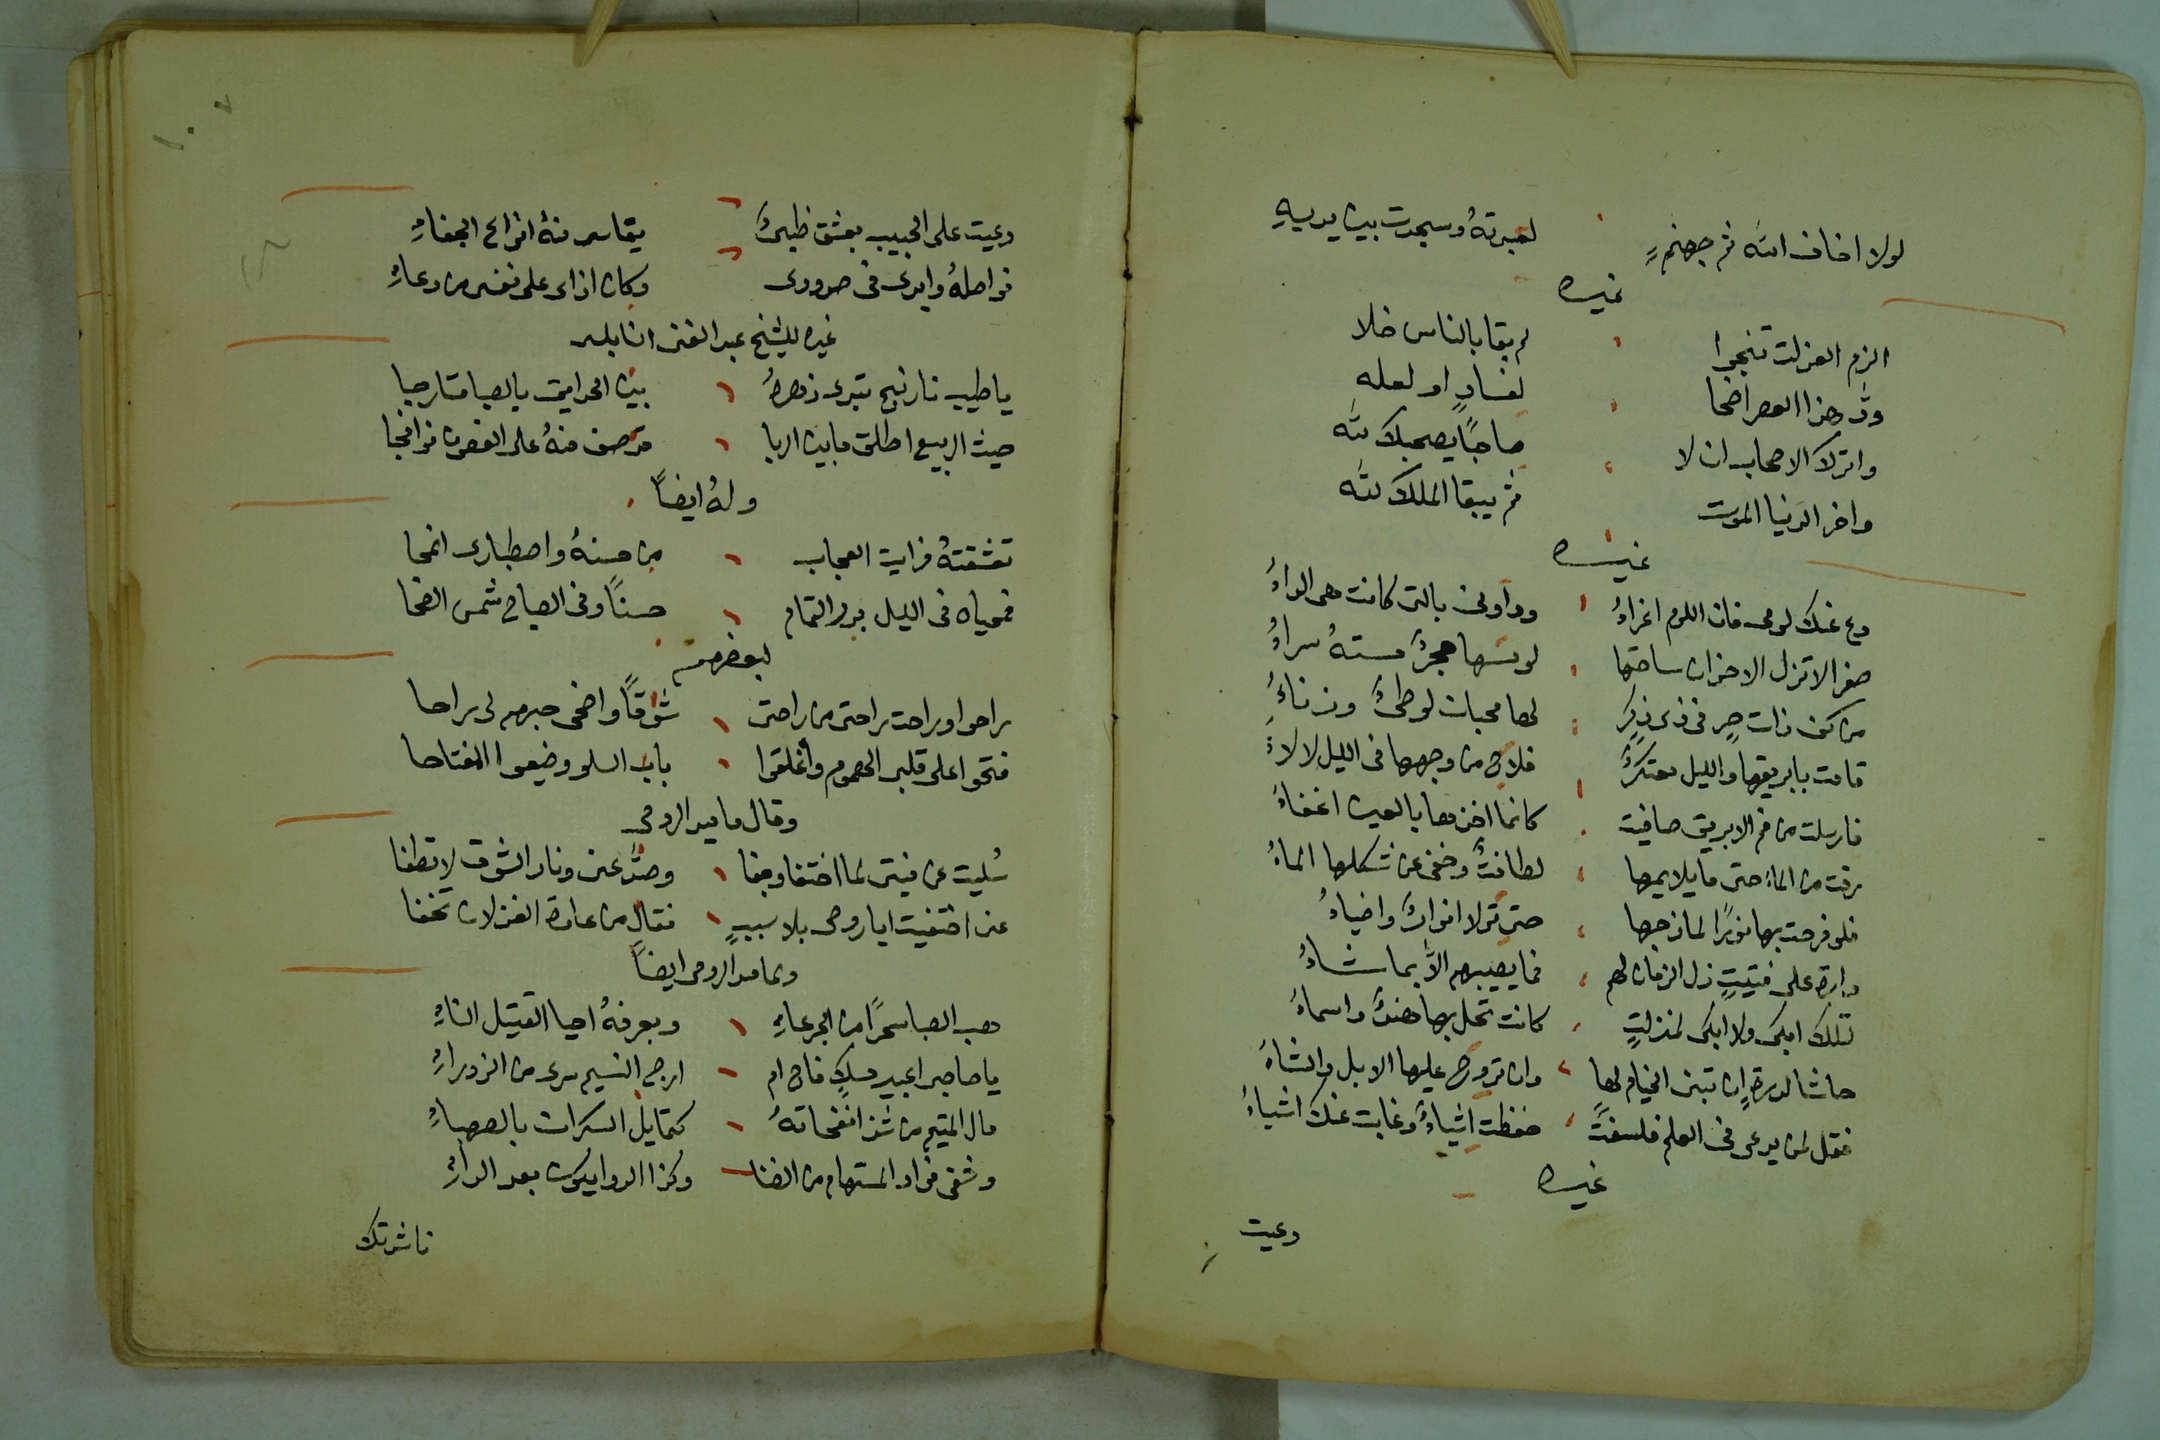 لولا اخاف الله ثم جهنمٍ لعبدتهُ وسجدت بين يديهِ
غيره
الزم العزلت تنجوا لم بقا بالناس خلا
ودّ هذا العصر اضحا لفسادٍ او لعله
واترك الاصحاب ان لا صاحبًا يصحبك لله
واخر الدنيا الموت ثم يبقا الملك لله
غيره
دع عنك لومي فان اللوم اغراءُ وداوني بالتي كانت هي الداءُ
صفرا لا تنزل الاحزان ساحتها لو مسها حجرٌ مستهُ سراءُ
من كف ذات حرٍ في ذي ذكرٍ لها محبان لوطيٌ وزناءُ
قامت بابريقها والليل معتكرٌ فلاح من وجهها في الليل لالاءُ
فارسلت من فم الابريق صافيت كانما اخذها بالعين اغفاءُ
رقت من الماء حتى ما يلايمها لطافتٌ وخفى عن شكلها الماءُ
فلو فرجت بها نورًا لمازجها حتى تولا انوارٌ واضياءُ
دارة على فتيتٍ ذل الزمان لهم فما يصيبهم الاّ بما شاءُ
لتلك ابكي ولا ابكي لمنزلتٍ كانت تحل بها هندٌ واسماءُ
حاشا لدرةٍ ان تبنى الخيام لها وان تروح عليها الابل والشاءُ
فقل لمن يدعى في العلم فلسفتً حفظت اشياءً وغابت عنك اشياءُ
غيره
دعيت
١٠٧
دعيت على الحبيب بعشق ظبيٌ يقاسي منهُ انواع الجفاءِ
فواصلهُ وايدي في صدودي وكان اذاى على نفسي من دعاءِ
غيره للشيخ عبد الغني النابلسي
يا طيب نارنج تبدى زهرهُ بين الحدايق بالصبا متارجا
حيث الربيع اطلق ما بين الربا مترصف منهُ على الغصون نوافجا
ولهُ ايضاً
تعشقتهُ فرايت العجاب من حسنهُ واصطباري انمحا
محياه في الليل بدر التمام حسنًا وفي الصباح شمس الضحا
لبعضهم
راحوا وراحت راحتي من راحتي شوقًا واضحى حبهم لي راحا
فتحوا على قلبي الهموم واغلقوا باب السلو وضيعوا المفتاحا
وقال ماميه الرومي
سُليت عن فيتي لما اختفا وجفا وصدّ عني ونار الشوق لا تطفا
عني اختفيت ايا روحي بلا سببٍ فقال من عادة الغزلان تخفا
وماميه الرومي ايضاً
هب الصبا سحرًا من الجرعاءِ وبعرفهُ احيا القتيل الناءِ
يا صاحبي اعبير مسكٍ فاح ام ارج النسيم سرى من الزوراءِ
مال المتيم من شذا نفحاتهُ كتمايل السكران بالصهباءِ
وشفى فواد المستهام من الضنا وكذا الدوا يكون بعد الداءِ
ناشدتك